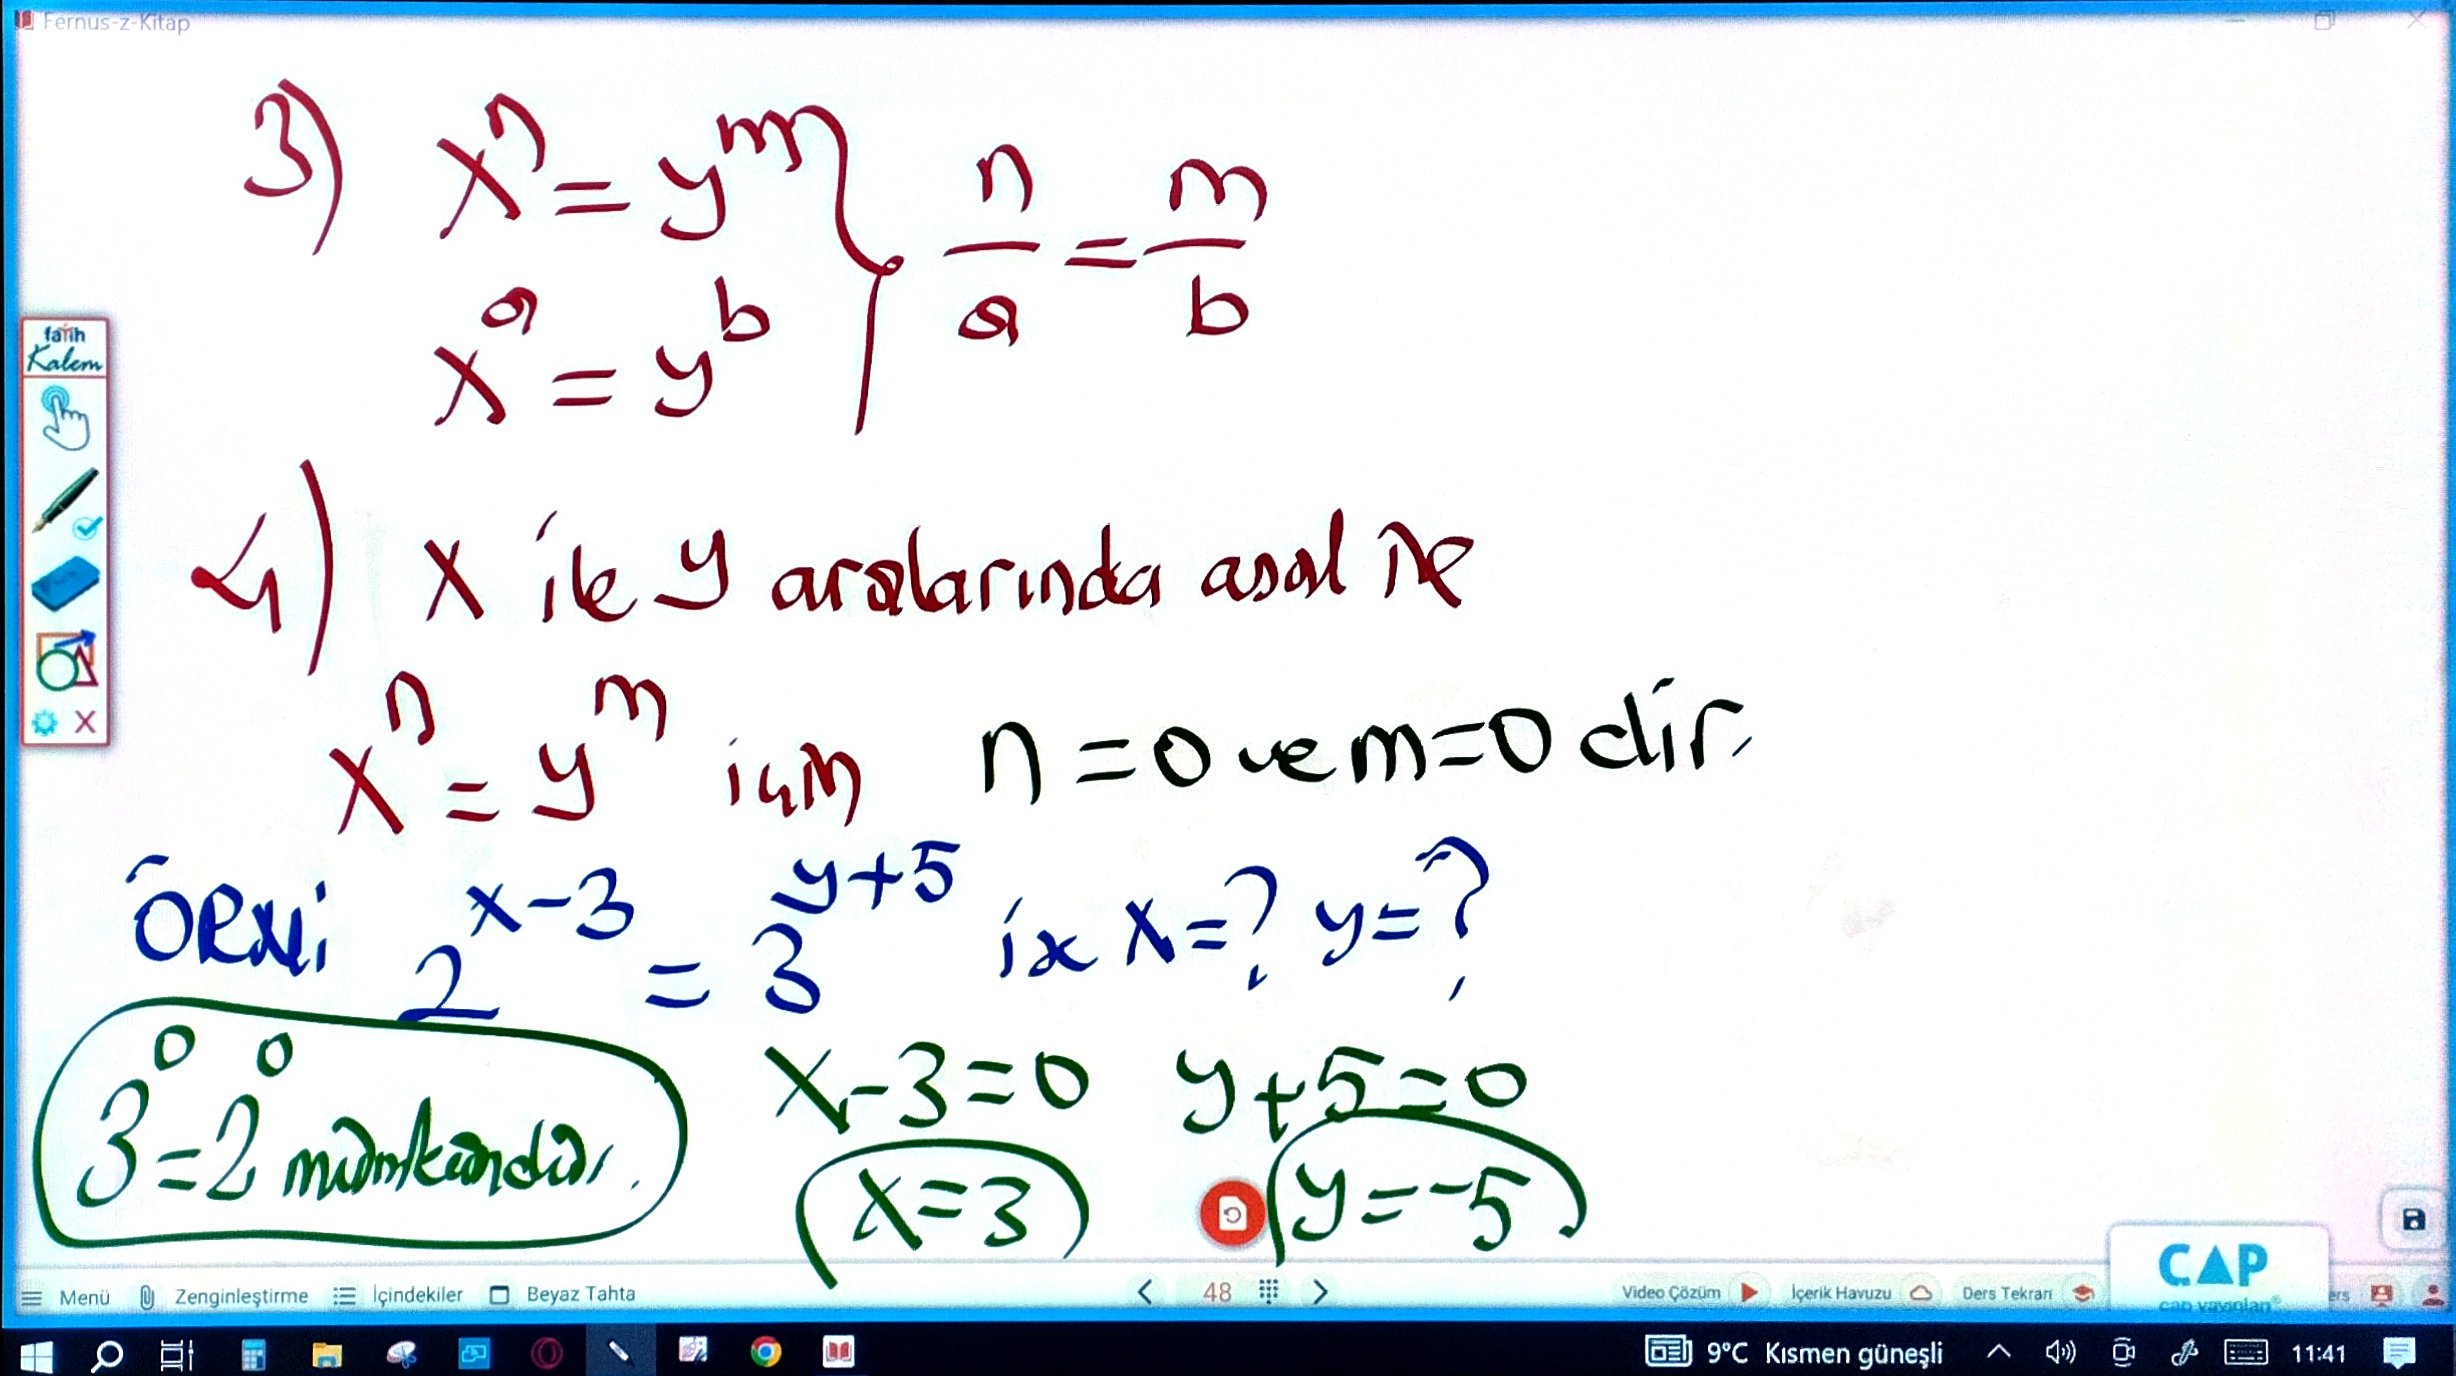 Fernus-z-Kitap
3) xⁿ = yᵐ } n/a = m/b
xᵃ = yᵇ
fatih
Kalem
4) x ile y aralarında asal ise
xⁿ = yᵐ için n = 0 ve m = 0 dir.
ÖRNEĞİ 2ˣ⁻³ = 3ʸ⁺⁵ ise x = ? y = ?
3⁰ = 2⁰ mümkündür. x - 3 = 0 y + 5 = 0
x = 3 y = -5
CAP
cap yayınları®
Menü Zenginleştirme İçindekiler Beyaz Tahta 48 Video Çözüm İçerik Havuzu Ders Tekrarı
9°C Kısmen güneşli 11:41